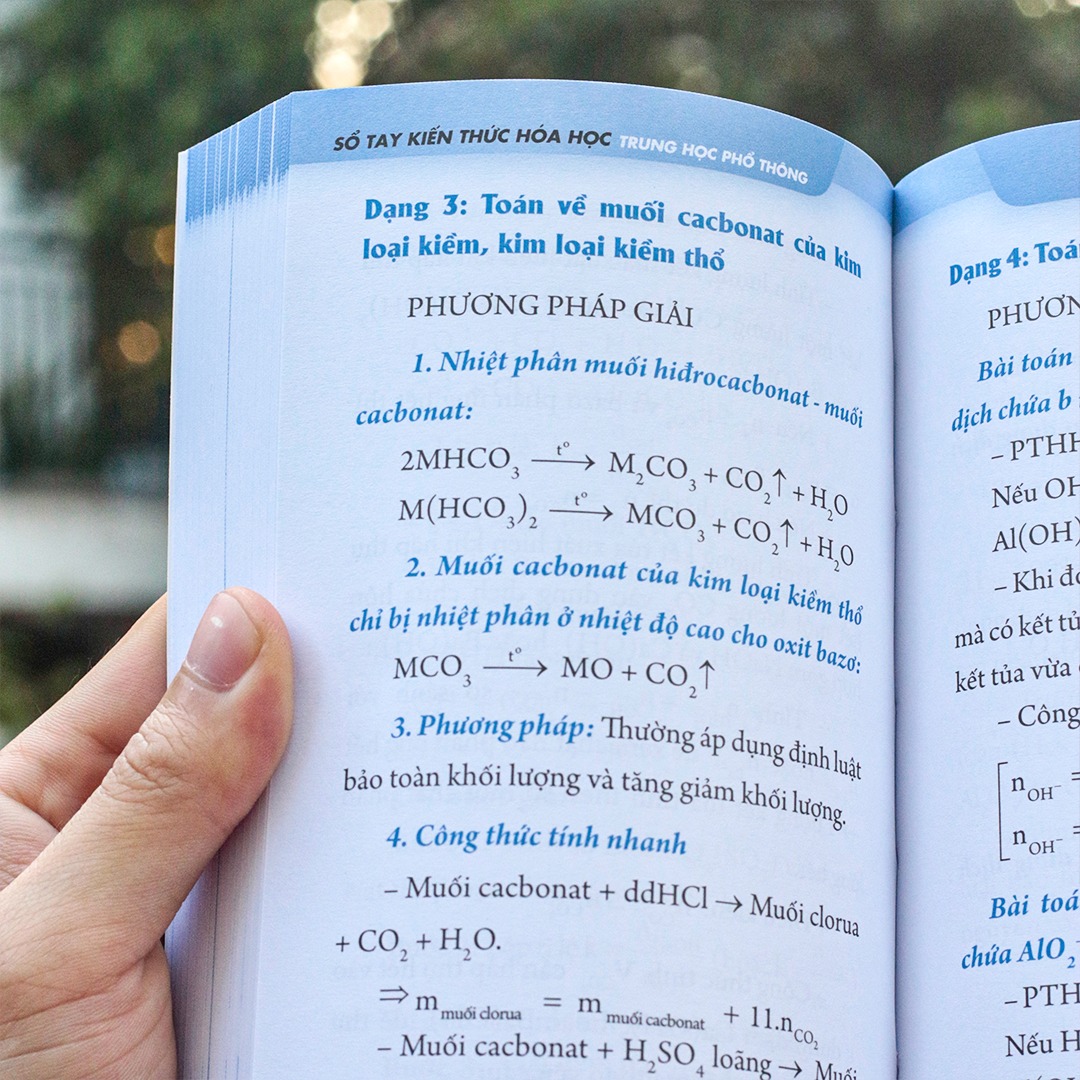 SỔ TAY KIẾN THỨC HÓA HỌC TRUNG HỌC PHỔ THÔNG
Dạng 3: Toán về muối cacbonat của kim
loại kiềm, kim loại kiềm thổ
PHƯƠNG PHÁP GIẢI
1. Nhiệt phân muối hiđrocacbonat - muối
cacbonat:
2MHCO₃ —t°→ M₂CO₃ + CO₂↑ + H₂O
M(HCO₃)₂ —t°→ MCO₃ + CO₂↑ + H₂O
2. Muối cacbonat của kim loại kiềm thổ
chỉ bị nhiệt phân ở nhiệt độ cao cho oxit bazơ:
MCO₃ —t°→ MO + CO₂↑
3. Phương pháp: Thường áp dụng định luật
bảo toàn khối lượng và tăng giảm khối lượng.
4. Công thức tính nhanh
– Muối cacbonat + ddHCl → Muối clorua
+ CO₂ + H₂O.
⇒ m muối clorua = m muối cacbonat + 11.n CO₂
– Muối cacbonat + H₂SO₄ loãng → Muối
Dạng 4:
Bài toán
dịch chứa b
Nếu
Al(OH)
– Khi
mà có kết tủ
kết tủa vừa
– Công
n OH⁻ =
n OH⁻ =
Bài
chứa AlO₂⁻
– PTH
Nếu H